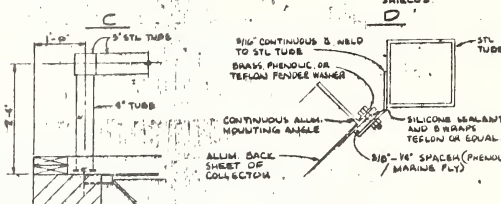 SHIELDS
C
D
1'-0"
5" STL TUBE
4" TUBE
2'-4"
3/16" CONTINUOUS & WELD
TO STL TUBE
BRASS, PHENOLIC, OR
TEFLON FENDER WASHER
CONTINUOUS ALUM.
MOUNTING ANGLE
ALUM. BACK
SHEET OF
COLLECTOR
STL
TUBE
SILICONE SEALANT
AND 8 WRAPS
TEFLON OR EQUAL
SPACER (PHENOL
/ MARINE PLY)